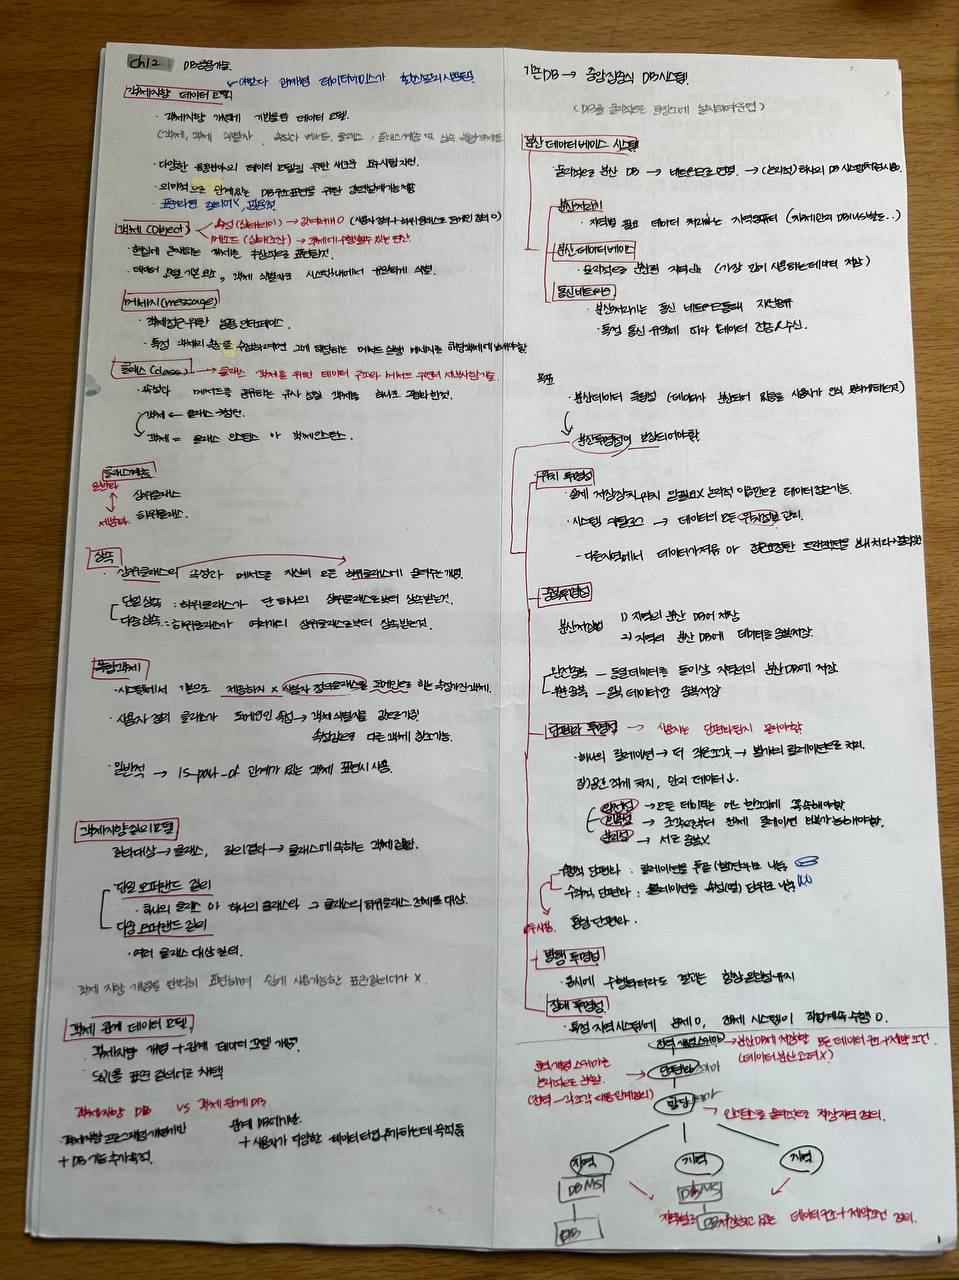 ch12 DB응용기술
객체지향 데이터 모델
· 객체지향 개념에 기반을 둔 데이터 모델.
(객체, 객체 식별자, 속성과 메서드, 클래스, 클래스계층 및 상속, 복합객체
· 다양한 응용분야의 데이터 모델링을 위한 새로운 요구사항 지원.
· 의미적으로 관계있는 DB구조표현을 위한
· 표준화된 질의어X,
객체(object) 속성(상태의미) → 값 여러개 O (사용자 정의 + 하위클래스도 도메인 정의 O)
메소드(상태조작) → 객체에 수행할 수 있는 연산
· 현실에 존재하는 개체를 추상적으로 표현한것.
· 데이터 모델 기본요소, 객체 식별자로 시스템내에서 유일하게 식별.
메시지(message)
· 객체접근 위한 공용 인터페이스.
· 특정 객체의 속성을 수정하려면 그에 해당하는 메서드 실행 메시지를 해당객체에 보내야함
클래스(class) → 클래스 객체를 위한 데이터 구조와 메서드 구현의 세부사항 기술.
· 속성과 메서드를 공유하는 유사 성질 객체를 하나로 그룹화 한것.
객체 ← 클래스 구성원.
객체 = 클래스 인스턴스 or 객체인스턴스.
클래스계층
일반화 상위클래스
세분화 하위클래스.
상속
· 상위클래스의 속성과 메서드를 자신의 모든 하위클래스에 물려주는 개념.
단일 상속 : 하위클래스가 단 하나의 상위클래스로부터 상속받는것.
다중상속 : 하위클래스가 여러개의 상위클래스로부터 상속받는것.
복합객체
· 시스템에서 기본으로 제공하지 X 사용자 정의클래스를 도메인으로 하는 속성가진 객체.
· 사용자 정의 클래스가 도메인인 속성 → 객체 식별자를 값으로 가짐
속성값으로 다른 객체 참조가능.
· 일반적 → is-part-of 관계가 있는 객체 표현시 사용.
객체지향 질의모델
질의대상 → 클래스, 질의결과 → 클래스에 속하는 객체집합.
단일 오퍼랜드 질의
· 하나의 클래스 or 하나의 클래스와 그 클래스의 하위클래스 전체를 대상.
다중 오퍼랜드 질의
· 여러 클래스 대상 질의.
객체 지향 개념을 완벽히 표현하며 쉽게 사용가능한 표준질의어가 X.
객체 관계 데이터 모델.
객체지향 개념 + 관계 데이터 모델 개념.
SQL을 표준 질의어로 채택
객체지향 DB vs 객체 관계 DB
객체지향 프로그래밍 개념기반
+ DB기능 추가목적.
관계 DB에기반.
+ 사용자가 다양한 데이터 타입 추가하는데 목적 둠
기존DB → 중앙집중식 DB시스템.
분산데이터베이스 시스템
· 물리적으로 분산 DB → 네트워크로 연결. → (논리적) 하나의 DB시스템처럼 사용.
분산처리기
· 지역별 필요 데이터 처리하는 지역컴퓨터 (자체만의 DBMS별도..)
분산 데이터베이스
· 물리적으로 분산된 지역DB (가장 많이 사용하는 데이터 저장)
통신네트워크
· 분산처리기는 통신 네트워크 통해 자원공유
· 특정 통신 규약에 따라 데이터 전송&수신.
목표
· 분산데이터 독립성 (데이터가 분산되어 있음을 사용자가 인식 못하게하는것)
분산투명성이 보장되어야함.
위치 투명성
· 실제 저장장치·위치 알필요X 논리적 이름만으로 데이터 접근가능.
· 시스템 카탈로그 → 데이터의 모든 위치정보 관리.
중복투명성
분산저장법 1) 지역의 분산 DB에 저장
2) 지역의 분산 DB에 데이터를 중복저장.
완전중복 - 동일데이터를 둘이상 지역의 분산 DB에 저장
부분 중복 - 일부 데이터만 중복저장
단편화 투명성 → 사용자는 단편화된지 몰라야함.
· 하나의 릴레이션 → 더 작은조각 → 별개의 릴레이션으로 처리.
완전성 → 모든 데이터는 어느 한조각에 꼭 속해야함.
회복성 → 조각으로부터 전체 릴레이션 회복가능해야함.
분리성 → 서로 중복X.
수평적 단편화 : 릴레이션을 수평(행)단위로 나눔
수직적 단편화 : 릴레이션을 속성(열) 단위로 나눔
혼합 단편화.
병행 투명성
장애 투명성
· 특정 지역시스템에 문제O, 전체 시스템이 작업계속 수행 O.
전역 개념스키마 → 분산DB에 저장할 모든 데이터 구조+제약조건
(데이터 분산 고려X)
단편화 스키마
전역 개념 스키마를
논리적으로 분할.
할당 스키마
지역 지역 지역
DBMS DBMS
DB DB
지역별로 저장하고 있는 데이터구조+제약조건 정의.